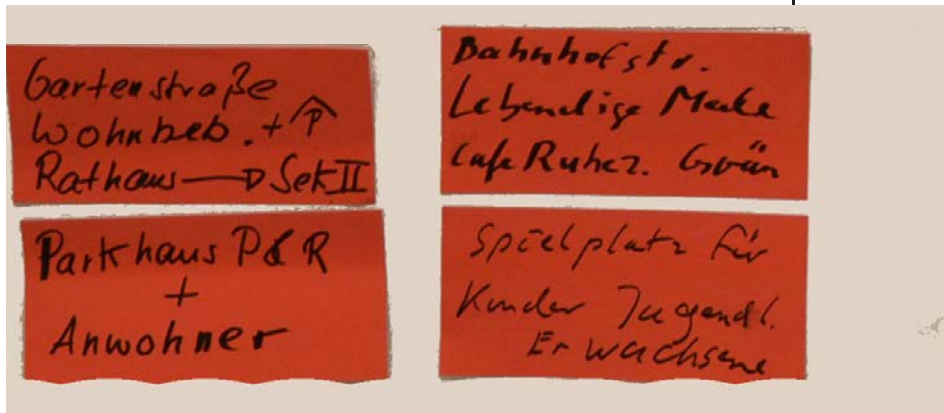 Gartenstraße
Wohnbeb. + P
Rathaus → Sek II
Parkhaus P & R
+
Anwohner
Bahnhofstr.
Lebendige
Cafe Ruhez. Grün
Spielplatz für
Kinder Jugendl.
Erwachsene